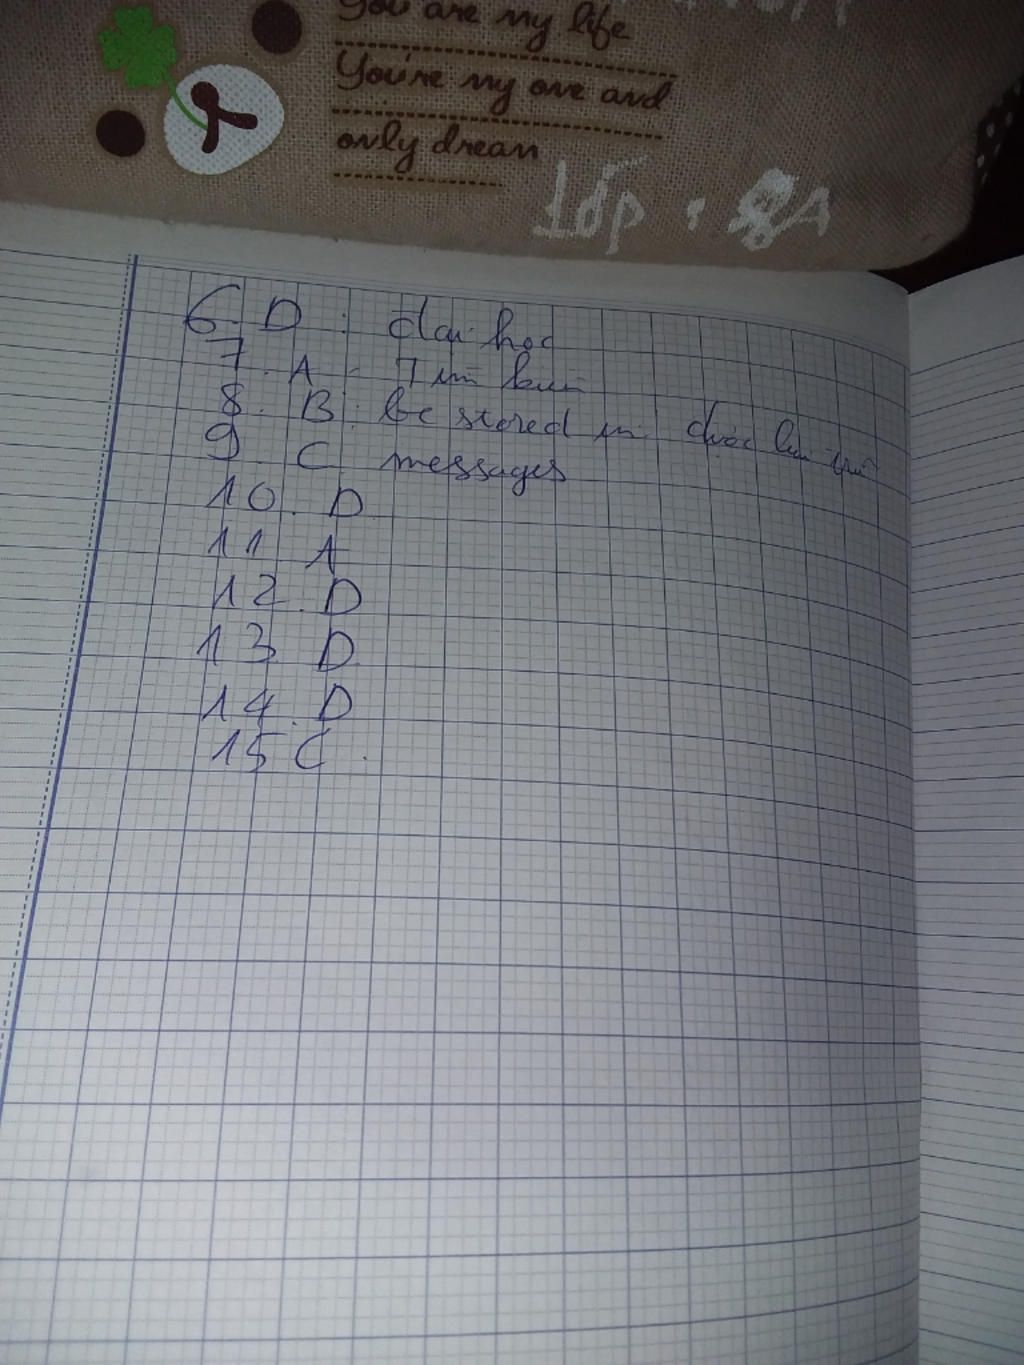 You are my life
You're my one and
only dream
lớp : 8A
6. D : đại học
7. A - Tìm kiếm
8. B : be stored in được lưu trữ
9 C messages
10. D
11 A
12. D
13 D
14. D
15 C.